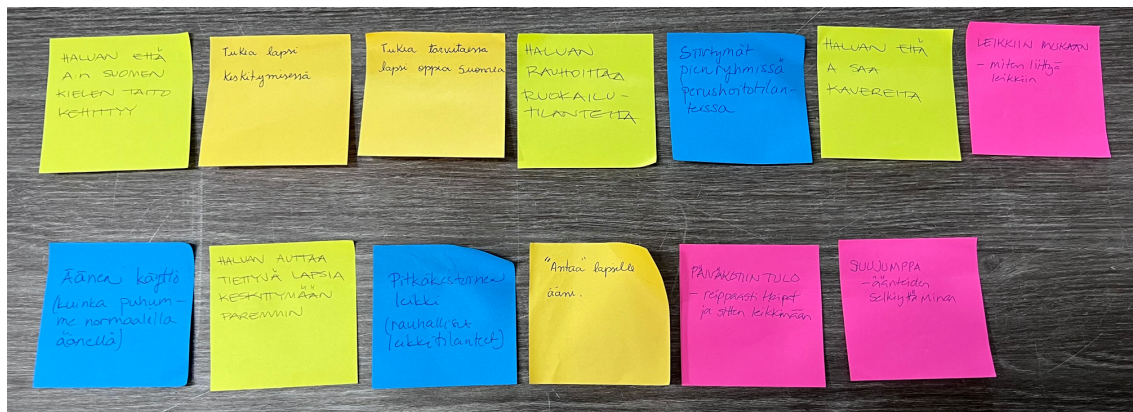 HALUAN ETTÄ
A:n SUOMEN
KIELEN TAITO
KEHITTYY
Tukea lapsi
keskitymisessä
Tukea tarvitaessa
lapsi oppia suomea
HALUAN
RAUHOITTAA
RUOKAILU-
TILANTEITA
Siirtymät
pienryhmissä
perushoitotilan-
teissa
HALUAN ETTÄ
A SAA
KAVEREITA
LEIKKIIN MUKAAN
- miten liittyä
leikkiin
Äänen käyttö
(kuinka puhum-
me normaalilla
äänellä)
HALUAN AUTTAA
TIETTYJÄ LAPSIA
KESKITTYMÄÄN
PAREMMIN
Pitkäkestoinen
leikki
(rauhalliset
leikkitilanteet)
"Antaa" lapselle
ääni.
PÄIVÄKOTIIN TULO
- reippaasti heipat
ja sitten leikkimään
SUUJUMPPA
- äänteiden
selkiyttäminen